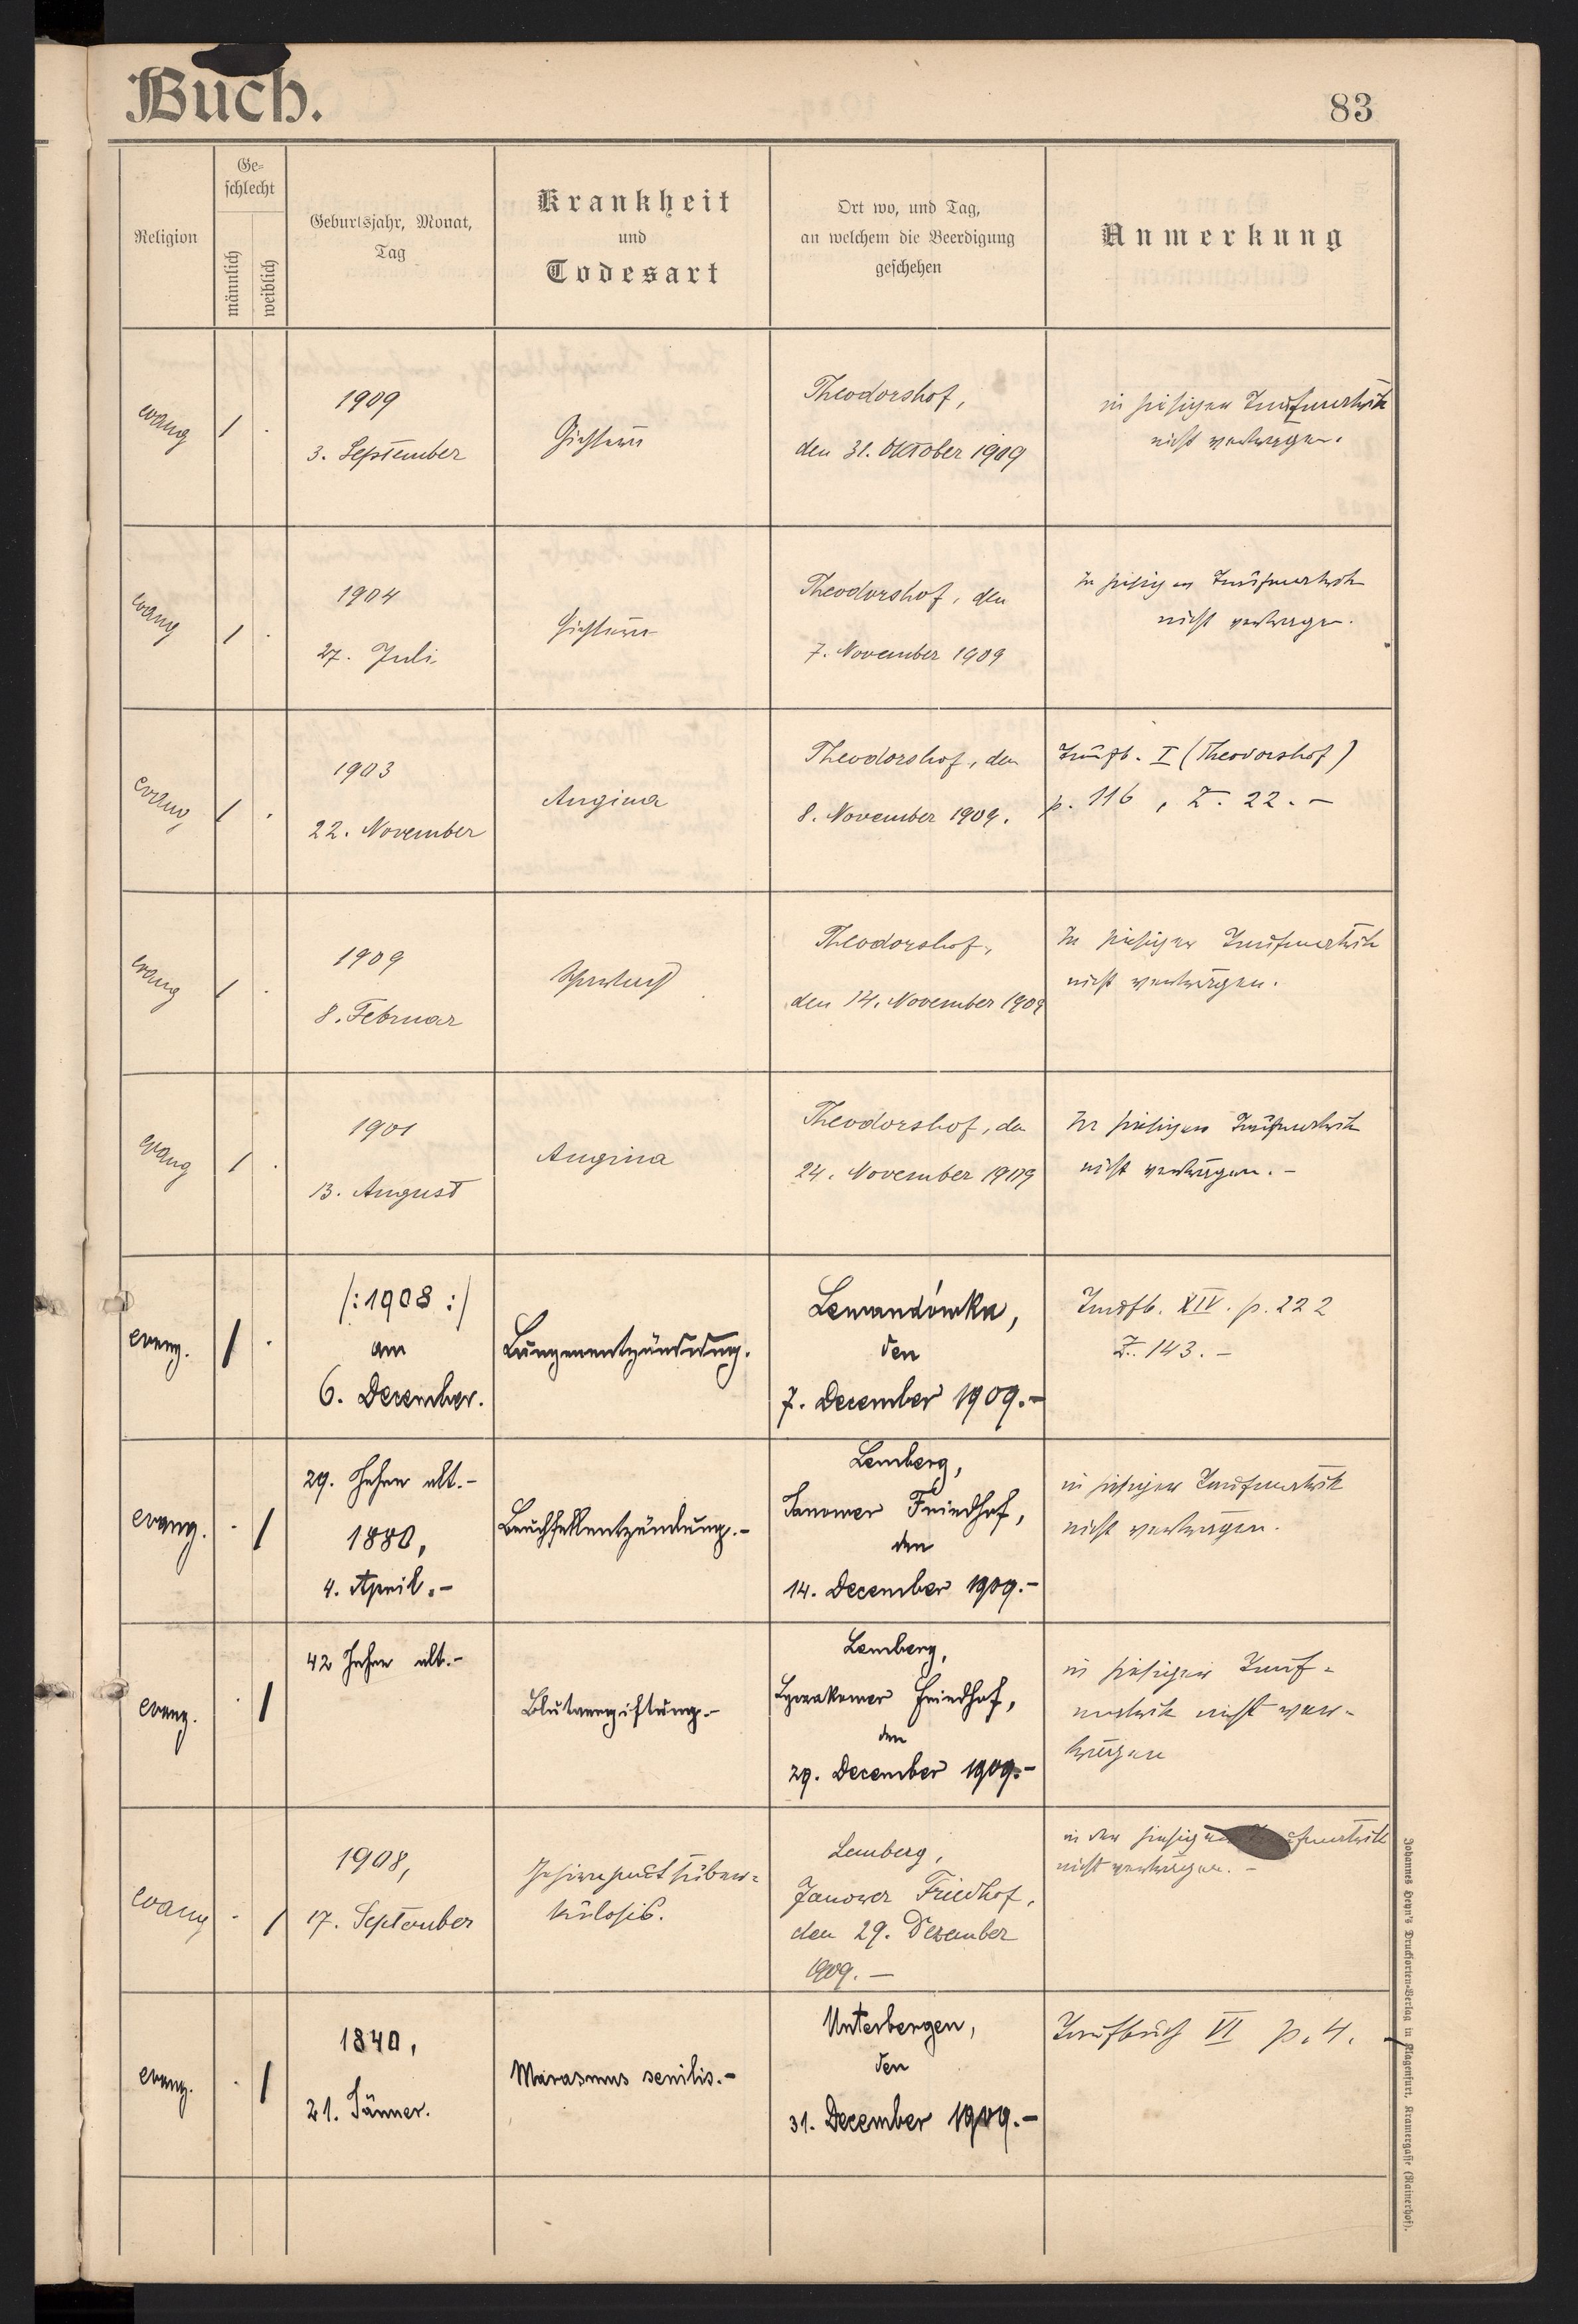 Buch.
83
Religion
Ge=
schlecht
männlich
weiblich
Geburtsjahr, Monat,
Tag
Krankheit
und
Todesart
Ort wo, und Tag,
an welchem die Beerdigung
geschehen
Anmerkung
evang
1
.
1909
3. September
Theodorshof,
den 31. Oktober 1909
in hiesiger Taufmatrik
nicht
evang
1
.
1904
27. Juli
Theodorshof, den
7. November 1909
In hiesiger Taufmatrik
nicht
evang
1
.
1903
22. November
Angina
Theodorshof, den
8. November 1909.
Taufb. I (Theodorshof)
p. 116, Z. 22. –
evang
1
.
1909
8. Februar
Theodorshof,
den 14. November 1909
In hiesiger Taufmatrik
nicht
evang
1
.
1901
13. August
Angina
Theodorshof, den
24. November 1909
In hiesiger Taufmatrik
nicht
evang.
1
.
/: 1908 :/
am
6. December.
Lungenentzündung.
Lewandówka,
den
7. December 1909.–
Taufb. XIV. p. 222
Z. 143. –
evang.
.
1
29. Jahre alt.–
1880,
4. April.–
Bauchfellentzündung.–
Lemberg,
Janower Friedhof,
den
14. December 1909.–
in hiesiger Taufmatrik
nicht
evang.
.
1
42 Jahre alt.–
Blutvergiftung.–
Lemberg,
Lyczakower Friedhof,
den
29. December 1909.–
in hiesiger Tauf=
matrik nicht
evang
.
1
1908,
17. September
Gehirnhauttuber=
kulosis.
Lemberg,
Janower Friedhof,
den 29. Dezember
1909. –
in der
nicht
evang.
.
1
1840,
21. Jänner.
Marasmus senilis.–
Unterbergen,
den
31. December 1909.–
Taufbuch VI p. 4. –
Johannes Heyn's Drucksorten-Verlag in Klagenfurt, Kramergasse (Rainerhof).